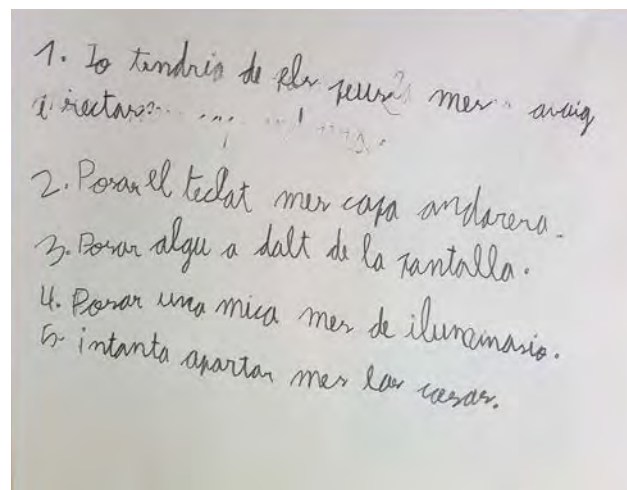 1. Io tendria de els peus mes avaig
i rectas
2. Posar el teclat mes capa andarera.
3. Posar algu a dalt de la pantalla.
4. Posar una mica mes de iluminasio.
5. intanta apartar mes las cosas.